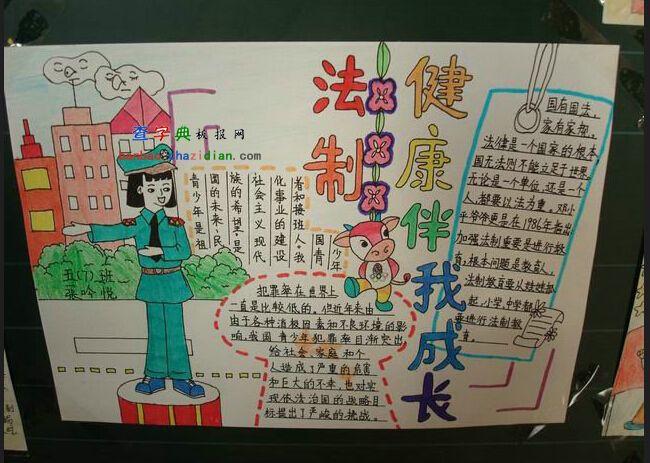 法制
健康伴我成长
查字典板报网
五(7)班
国有国法,
家有家规,
法律是一个国家的根本
国无法则不能立足于世界,
无论是一个单位,还是一个
人,都要以法为重。邓小
平爷爷更是在1986年指出
加强法制重要是进行教
育,根本问题是教育人,
法制教育要从娃娃抓
起,小学,中学都
要进行法制教
育。
青少年是祖
国的未来、民
族的希望,是
社会主义现代
化事业的建设
者和接班人。我
国青少年
犯罪率在世界上
一直是比较低的。但近年来由
由于各种消极因素和不良环境的影
响,我国青少年犯罪率日渐突出
给社会、家庭和个
人造成了严重的危害
和巨大的不幸,也对实
现依法治国的战略目
标提出了严峻的挑战。